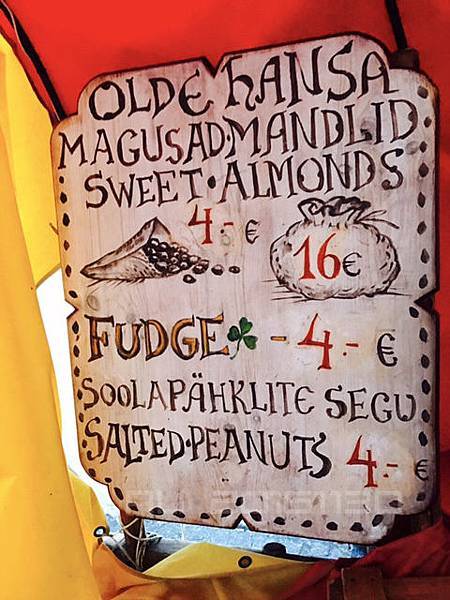 OLDE HANSA
MAGUSAD·MANDLID
SWEET·ALMONDS
4.- €
16€
FUDGE - 4.- €
SOOLAPÄHKLITE SEGU
SALTED·PEANUTS 4.- €